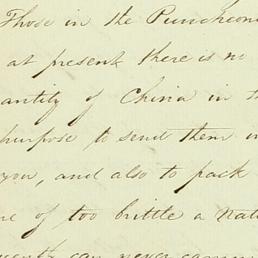 Those in the Puncheons
at present there is no
antity of China in t
purpose to send them in
you, and also to pack
re of too brittle a natu
quently can never